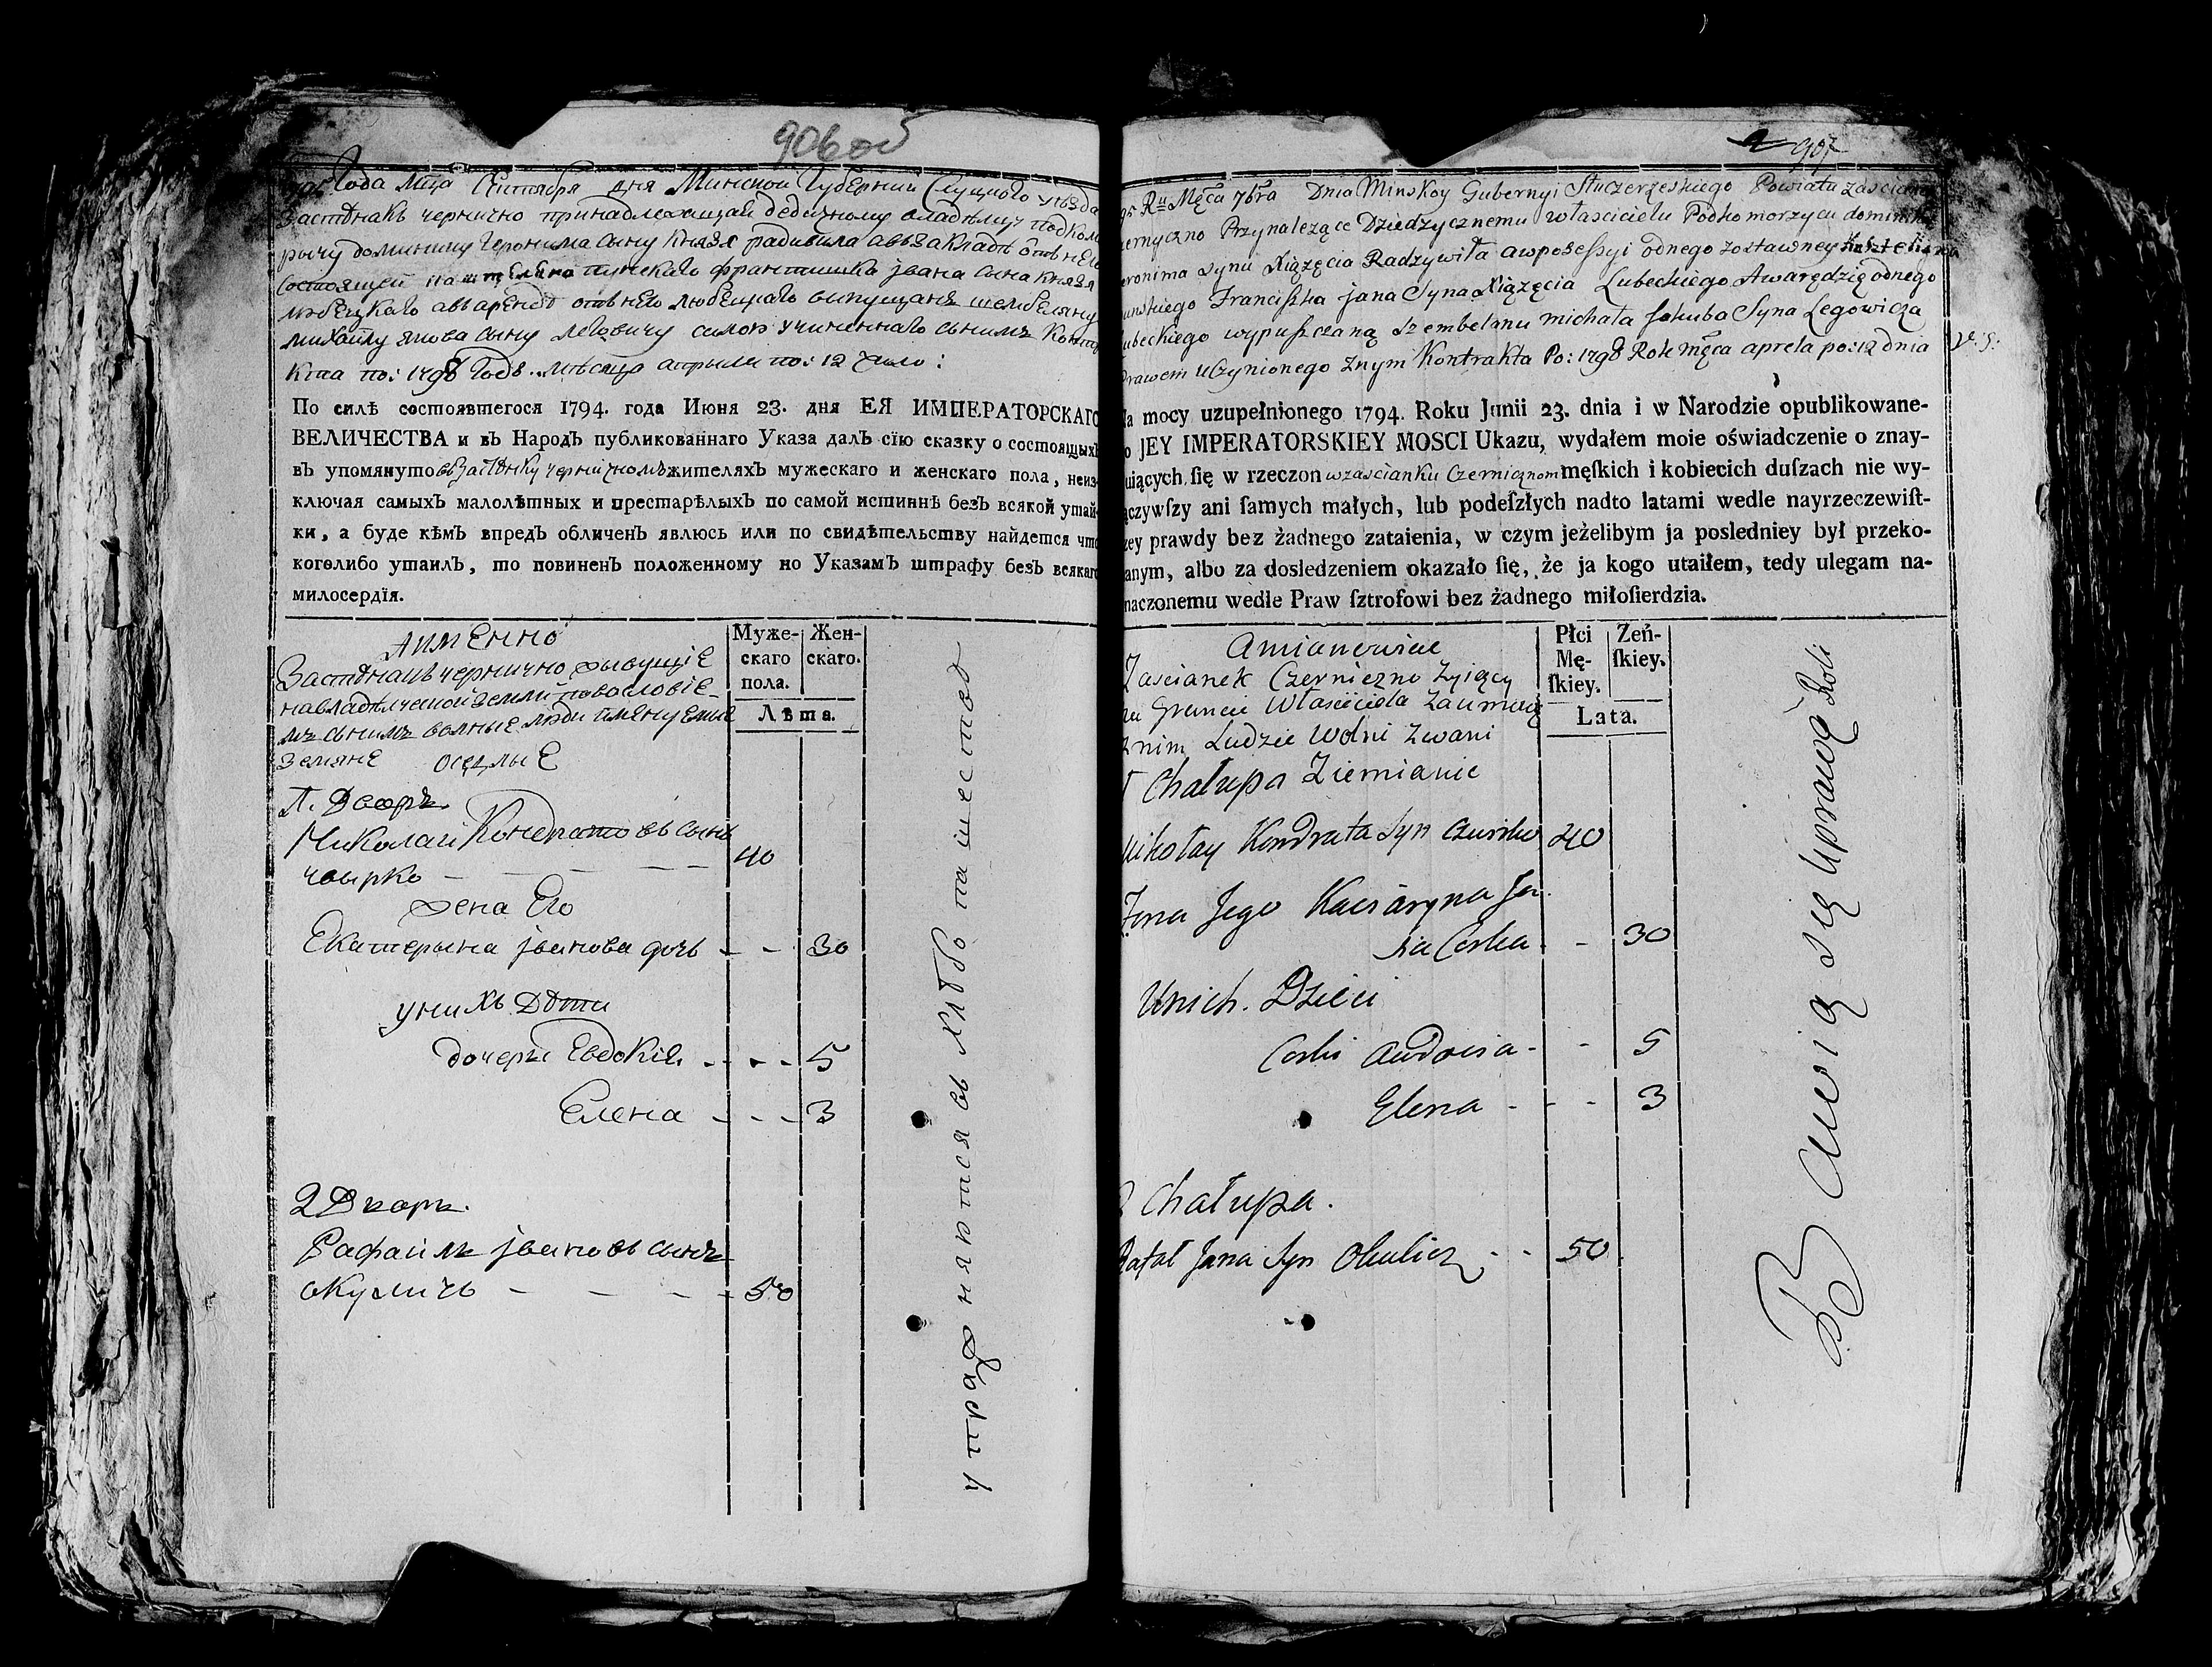 906 об
1795 Года Мца Сентября дня Минской Губернии Слуцкого уезда
Застѣнакъ чернично принадлежащай дедичному владѣлцу подкомо
рычу доминику Геронима сыну Князя радивила авъ закладѣ отъ него
состоящей пинскаго францишка јвана сина князя
любецкаго авъ арендѣ отъ него любецкаго випущанъ шембеляну
михайлу якова сыну леговичу силою учиненнаго сънимъ Контра
кта по: 1798 Годъ мѣсяца апрыля по: 12 число:
По силѣ состоявшегося 1794. года Июня 23. дня ЕЯ ИМПЕРАТОРСКАГО
ВЕЛИЧЕСТВА и въ Народъ публикованнаго Указа далъ сїю сказку о состоящыхъ
въ упомянуто въ застѣнку черничномъ жителяхъ мужескаго и женскаго пола, неиз-
ключая самыхъ малолѣтных и престарѣлыхъ по самой истиннѣ безъ всякой утай-
ки, а буде кѣмъ впредъ обличенъ явлюсь или по свидѣтельству найдется что
коголибо утаилъ, то повиненъ положенному по Указамъ штрафу безъ всякаго
милосердїя.
АИМЕННО
Муже-
скаго
пола.
Жен-
скаго.
Лѣта.
Застѣнакъ чернично живущіе
навладѣлческой земли поасловіе-
мъ сънимъ волные люди имянуемые
земяне оседлые
1. Дворъ.
Николай Кондратовъ сынъ
чвырко - - - - 40
жена Его
Екатерына јванова дочь - - 30
унихъ Дѣти
дочери Евдокія - - - 5
Елена - - - 3
2 Дворъ.
Рафаилъ јвановъ сынъ
окуличъ - - - - 50
упражняются въ хлѣбопашествѣ
907
95 Ru Męca 7bra Dnia Minskoy Gubernyi Słuczerzeskiego Powiatu zascianek
zernyczno Przynalezące Dziedzycznemu własciciełu Podkomorzycu dominika
eronima synu Xiązęcia Radzywiła awposessyi odnego zostawney Kasztelana
inskiego Franciszka jana Syna Xiązęcia Lubeckiego Awarędzię odnego
ubeckiego wypuszczaną szembelanu michała jakuba Syna Legowicza
prawem uczynionego znym Kontrakta Po: 1798 Rok męca aprela po: 12 dnia
Na mocy uzupełnionego 1794. Roku Junii 23. dnia i w Narodzie opublikowane-
o JEY IMPERATORSKIEY MOSCI Ukazu, wydałem moie oświadczenie o znay-
uiących ſię w rzeczon wzascianku Czernicznom męſkich i kobiecich duſzach nie wy-
ączywſzy ani ſamych małych, lub podeſzłych nadto latami wedle nayrzeczewiſt-
zey prawdy bez żadnego zataienia, w czym jeżelibym ja posledniey był przeko-
anym, albo za dosledzeniem okazało ſię, że ja kogo utaiłem, tedy ulegam na-
naczonemu wedle Praw ſztrofowi bez żadnego miłoſierdzia.
Amianowicie
Płci
Mę-
ſkiey.
Zeń-
ſkiey.
Lata.
Zascianek Czerniczno Zyiący
na Gruncie Własciciela Zaumową
znim Ludzie Wolni Zwani
1 Chałupa Ziemianie
Mikołay Kondrata Syn Czwirko 40
Zona Jego Kacsaryna Ja
na Corka - - 30
Unich. Dzieci
Corki Audocia - - 5
Elena - - - 3
2 Chałupa.
Rafał Jana Syn Okulicz - - 50
Bawią się Uprawą Roli